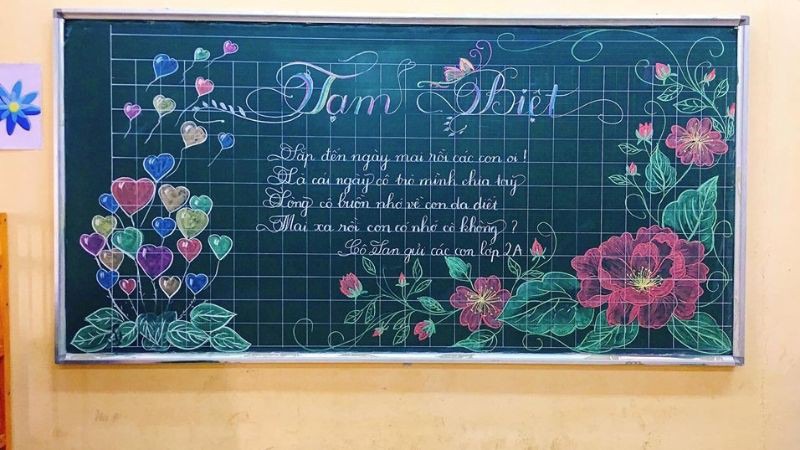 Tạm Biệt
Sắp đến ngày mai rồi các con ơi !
Là cái ngày cô trò mình chia tay
Lòng cô buồn nhớ về con da diết
Mai xa rồi con có nhớ cô không ?
Cô San gửi các con lớp 2A